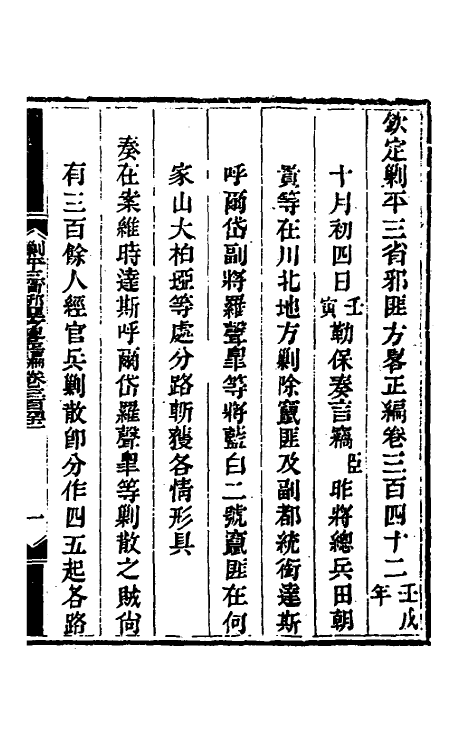 欽定剿平三省邪匪方畧正編卷三百四十二壬戌年
十月初四日壬寅勒保奏言竊臣昨將總兵田朝
貴等在川北地方剿除竄匪及副都統銜達斯
呼爾岱副將羅聲臯等將藍白二號竄匪在何
家山大柏埡等處分路斬獲各情形具
奏在案維時達斯呼爾岱羅聲臯等剿散之賊尙
有三百餘人經官兵剿散卽分作四五起各路
剿平三省邪匪方畧正編卷三百四十二
一